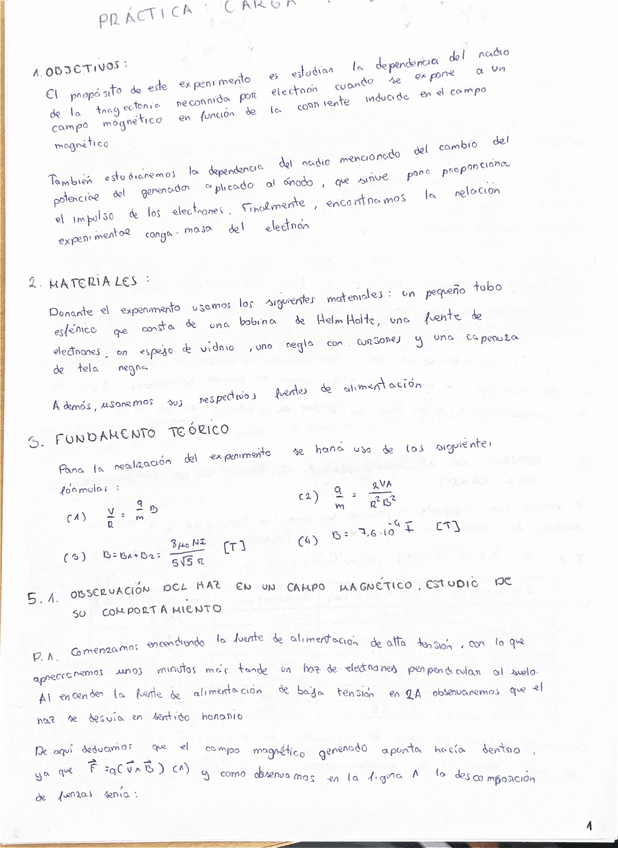 PRÁCTICA: CARGA
1. OBJETIVOS:
El propósito de este experimento es estudiar la dependencia del radio
de la trayectoria recorrida por electrón cuando se expone a un
campo magnético en función de la corriente inducida en el campo
magnético
También estudiaremos la dependencia del radio mencionado del cambio del
potencial del generador aplicado al ánodo, que sirve para proporcionar
el impulso de los electrones. Finalmente, encontramos la relación
experimental carga-masa del electrón
2. MATERIALES:
Durante el experimento usamos los siguientes materiales: un pequeño tubo
esférico que consta de una bobina de HelmHoltz, una fuente de
electrones, un espejo de vidrio, una regla con cursores y una caperuza
de tela negra
Además, usaremos sus respectivos fuentes de alimentación
3. FUNDAMENTO TEÓRICO
Para la realización del experimento se hará uso de las siguientes
fórmulas:
(1) V/R = q/m B (2) q/m = 2VA/R²B²
(3) B = B1 + B2 = 8μ0NI/5√5 R [T] (4) B = 7.6·10⁻⁴ I [T]
5.1. OBSERVACIÓN DEL HAZ EN UN CAMPO MAGNÉTICO, ESTUDIO DE
SU COMPORTAMIENTO
P.1. Comenzamos encendiendo la fuente de alimentación de alta tensión, con lo que
apreciaremos unos minutos más tarde un haz de electrones perpendicular al suelo.
Al encender la fuente de alimentación de baja tensión en 2A observaremos que el
haz se desvía en sentido horario
De aquí deducimos que el campo magnético generado apunta hacía dentro,
ya que F⃗ = q(V⃗ x B⃗) (1) y como observamos en la figura 1 la descomposición
de fuerzas sería:
1